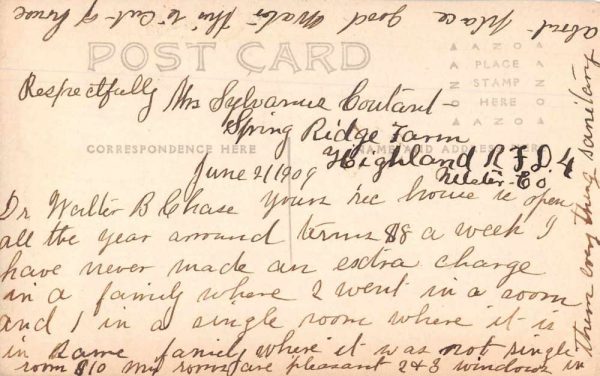 POST CARD
AZO
PLACE
STAMP
HERE
AZO
CORRESPONDENCE HERE
NAME AND ADDRESS HERE
June 21 1909
Dr Walter B Chase Yours rec house is open
all the year around terms $8 a week I
have never made an extra charge
in a family where 2 went in a room
and 1 in a single room where it is
in same family where it was not single
room $10 my rooms are pleasant 2 & 3 windows in
them evry thing sanitary
about place good water this is cut of house
Respectfully Mrs Sylvanue Coutant
Spring Ridge Farm
Highland R F D. 4
Ulster Co